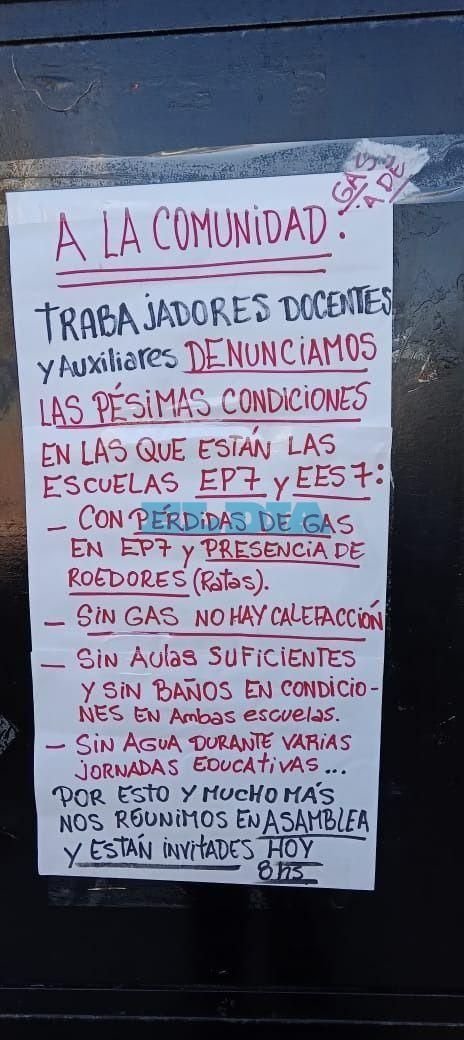 A LA COMUNIDAD:
TRABAJADORES DOCENTES
y AUXiliares DENUNCiAMOS
LAS PÉSiMAS CONDICIONES
EN LAS QUE ESTÁN LAS
ESCUELAS EP7 y EES7:
- CON PÉRDIDAS DE GAS
EN EP7 y PRESENCiA DE
ROEDORES (Ratas).
- SiN GAS NO HAY CALEFACCIÓN
- SiN Aulas SUFICIENTES
Y SiN BAÑOS EN CONDICIO-
NES EN Ambas escuelas.
- SiN AGUA DURANTE VARIAS
JORNADAS EDUCATiVAS...
POR ESTO Y MUCHO MÁS
NOS REUNIMOS EN ASAMBLEA
Y ESTÁN iNVITADES HOY
8hs
GAS
A DE
EL DIA